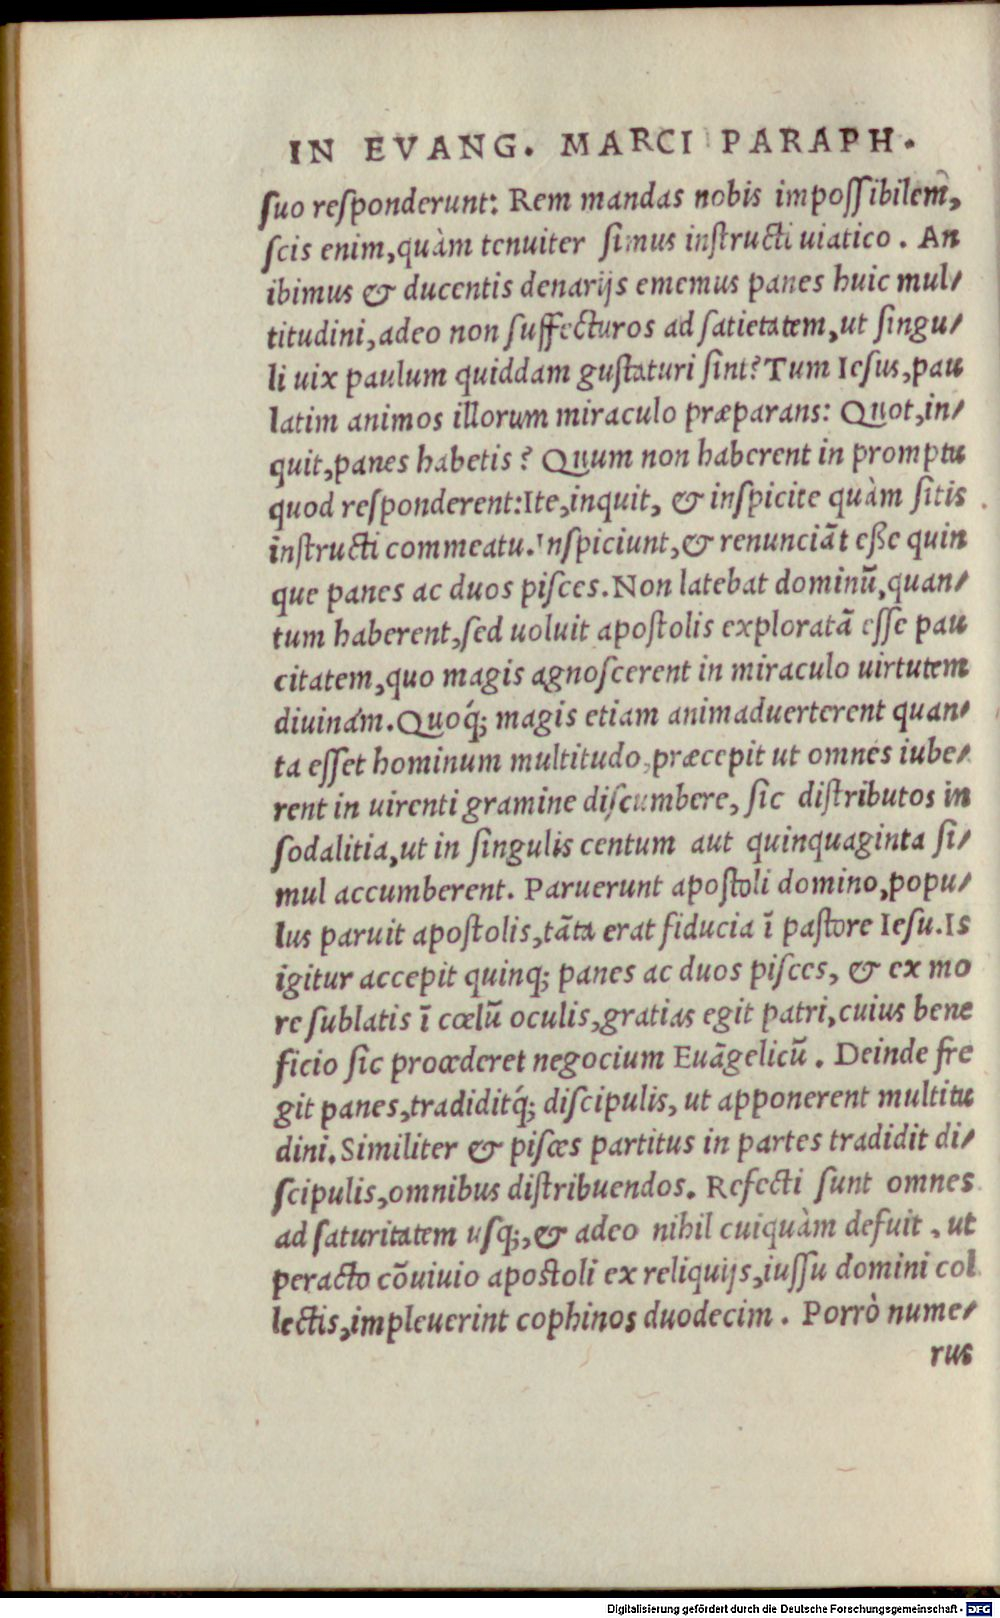 IN EVANG. MARCI PARAPH.
suo responderunt: Rem mandas nobis impossibilem,
scis enim, quàm tenuiter simus instructi uiatico. An
ibimus & ducentis denarijs ememus panes huic mul-
titudini, adeo non suffecturos ad satietatem, ut singu-
li uix paulum quiddam gustaturi sint? Tum Iesus, pau
latim animos illorum miraculo præparans: Quot, in-
quit, panes habetis? Quum non haberent in promptu
quod responderent: Ite, inquit, & inspicite quàm sitis
instructi commeatu. Inspiciunt, & renunciãt eße quin
que panes ac duos pisces. Non latebat dominũ, quan-
tum haberent, sed uoluit apostolis exploratã esse pau
citatem, quo magis agnoscerent in miraculo uirtutem
diuinam. Quoq́; magis etiam animaduerterent quan-
ta esset hominum multitudo, præcepit ut omnes iube-
rent in uirenti gramine discumbere, sic distributos in
sodalitia, ut in singulis centum aut quinquaginta si-
mul accumberent. Paruerunt apostoli domino, popu-
lus paruit apostolis, tãta erat fiducia ĩ pastore Iesu. Is
igitur accepit quinq; panes ac duos pisces, & ex mo
re sublatis ĩ cœlũ oculis, gratias egit patri, cuius bene
ficio sic procederet negocium Euãgelicũ. Deinde fre
git panes, tradiditq́; discipulis, ut apponerent multitu
dini. Similiter & pisces partitus in partes tradidit di-
scipulis, omnibus distribuendos. Refecti sunt omnes
ad saturitatem usq;, & adeo nihil cuiquàm defuit, ut
peracto cõuiuio apostoli ex reliquijs, iussu domini col
lectis, impleuerint cophinos duodecim. Porrò nume-
rus
Digitalisierung gefördert durch die Deutsche Forschungsgemeinschaft - DFG